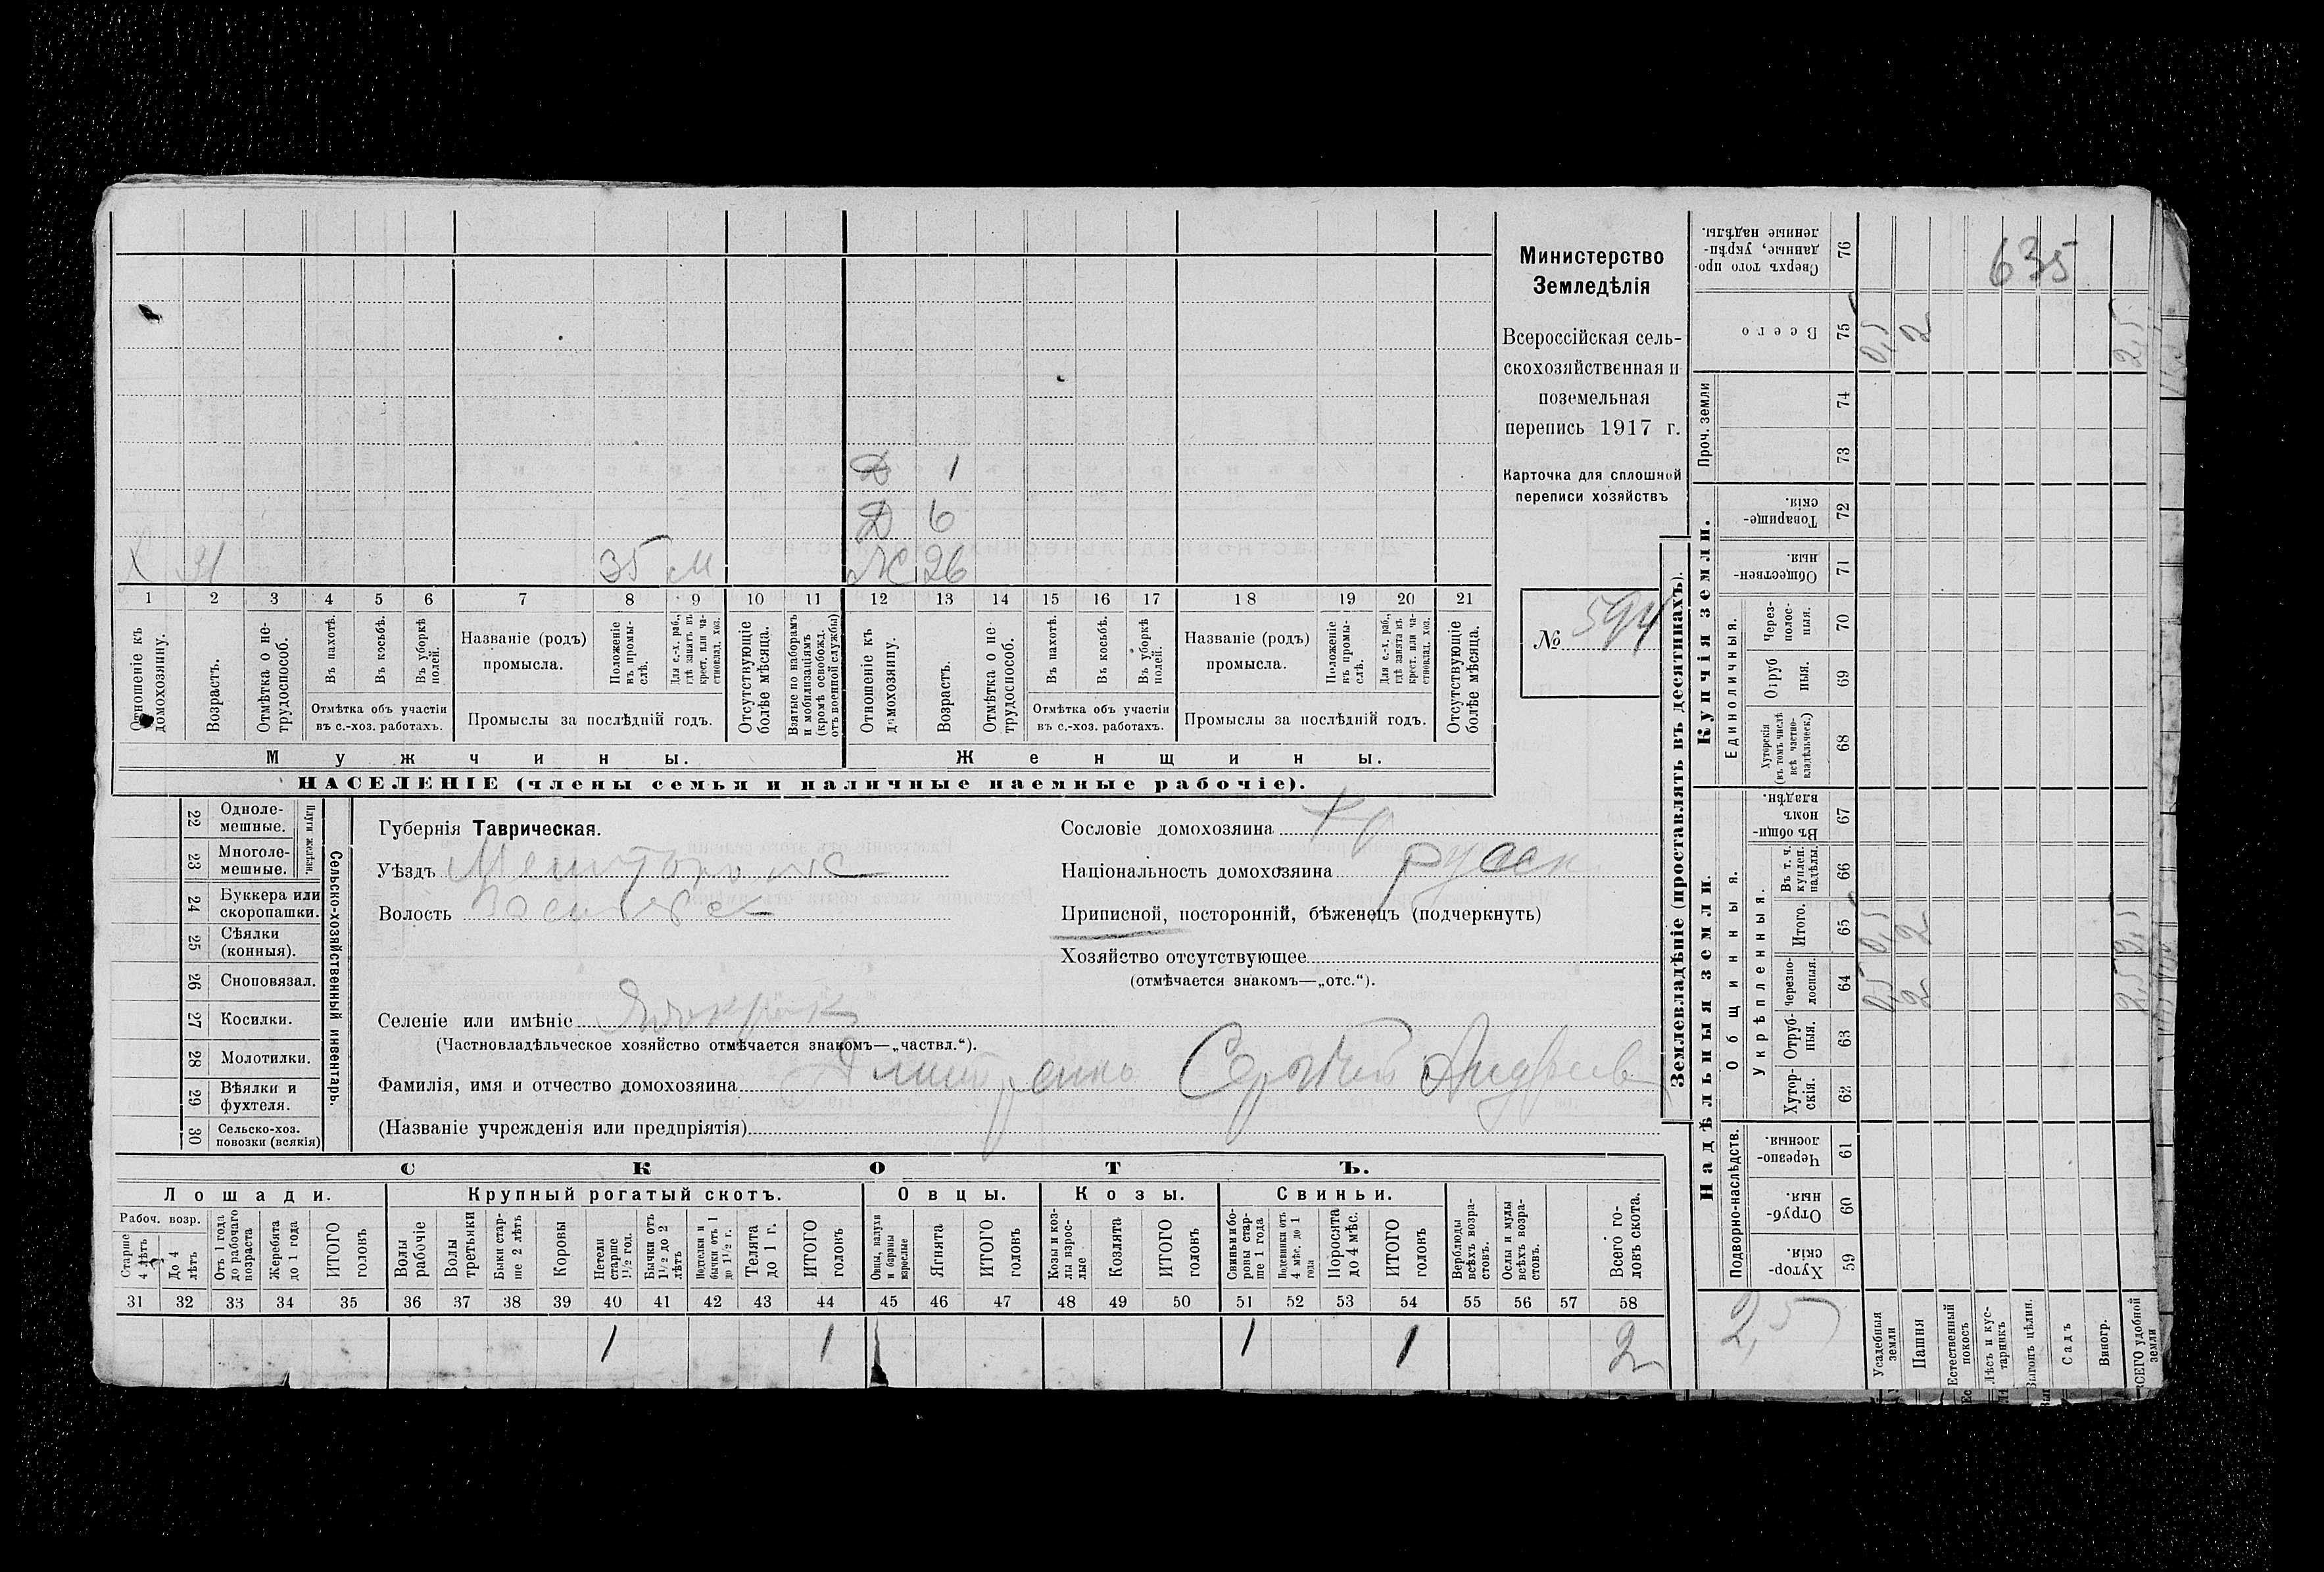 Д 1
Д 6
Х 31 35 М Ж 26
1 2 3 4 5 6 7 8 9 10 11 12 13 14 15 16 17 18 19 20 21
Отношеніе къ домохозяину.
Возрастъ.
Отмѣтка о не-трудоспособ.
Въ пахотѣ.
Въ косьбѣ.
Въ уборкѣ полей.
Отмѣтка объ участіи
въ с.-хоз. работахъ.
Названіе (родъ)
промысла.
Положеніе въ промы-слѣ.
Для с.-х. раб., гдѣ занятъ въ крест. или ча-стновлад. хоз.
Промыслы за послѣдній годъ.
Отсутствующіе болѣе мѣсяца.
Взятые по наборамъ и мобилизаціямъ (кромѣ освобожд. отъ военной службы)
Отношеніе къ домохозяину.
Возрастъ.
Отмѣтка о не трудоспособ.
Въ пахотѣ.
Въ косьбѣ.
Въ уборкѣ полей.
Отмѣтка объ участіи
въ с.-хоз. работахъ.
Названіе (родъ)
промысла.
Положеніе въ промы-слѣ.
Для с.-х. раб., гдѣ занята въ крест. или ча-стновлад. хоз.
Промыслы за послѣдній годъ.
Отсутствующіе болѣе мѣсяца.
Мужчины. Женщины.
НАСЕЛЕНІЕ (члены семья и наличные наемные рабочіе).
Министерство
Земледѣлія
Всероссійская сель-
скохозяйственная и
поземельная
перепись 1917 г.
Карточка для сплошной
переписи хозяйствъ
№ 594
22 Однолемешные.
23 Многоле-мешные.
Плуги желѣзн.
24 Буккера или скоропашки.
25 Сѣялки (конныя).
26 Сноповязал.
27 Косилки.
28 Молотилки.
29 Вѣялки и фухтеля.
30 Сельско-хоз. повозки (всякія)
Сельско-хозяйственный инвентарь.
Губернія Таврическая.
Уѣздъ
Волость
Селеніе или имѣніе
(Частновладѣльческое хозяйство отмѣчается знакомъ—„частвл.“).
Фамилія, имя и отчество домохозяина Сергѣй Андреев
(Названіе учрежденія или предпріятія)
Сословіе домохозяина кр
Національность домохозяина русск
Приписной, посторонній, бѣженецъ (подчеркнуть)
Хозяйство отсутствующее
(отмѣчается знакомъ—„отс.“).
СКОТЪ.
Лошади. Крупный рогатый скотъ. Овцы. Козы. Свиньи.
Рабоч. возр.
Старше 4 лѣтъ
До 4 лѣтъ
Отъ 1 года до рабочаго возраста
Жеребята до 1 года
ИТОГО головъ
Волы рабочіе
Волы третьяки
Быки стар-ше 2 лѣтъ
Коровы
Нетели старше 1½ год.
Бычки отъ 1½ до 2 лѣтъ
Подтелки и бычки отъ 1 до 1½ г.
Телята до 1 г.
ИТОГО головъ
Овцы, валухи и бараны взрослые
Ягнята
ИТОГО головъ
Козы и коз-лы взрос-лые
Козлята
ИТОГО головъ
Свиньи и бо-ровы стар-ше 1 года
Подсвинки отъ 4 мѣс. до 1 года
Поросята до 4 мѣс.
ИТОГО головъ
Верблюды всѣхъ возра-стовъ.
Ослы и мулы всѣхъ возра-стовъ.
Всего го-ловъ скота.
31 32 33 34 35 36 37 38 39 40 41 42 43 44 45 46 47 48 49 50 51 52 53 54 55 56 57 58
1 1 1 1 2
Землевладѣніе (проставлять въ десятинахъ).
635
76 Сверхъ того про-данные, укрѣп-ленные надѣлы.
75 Всего 0,5 2 2,5
Проч. земли
74
73
Купчія земли.
72 Товарище-скія.
71 Обществен-ныя.
Единоличныя.
70 Через-полос-ныя.
69 Отруб ныя.
68 Хуторскія (въ томъ числѣ всѣ частно-владѣльческ.)
Надѣльныя земли.
Общинныя.
67 Въ общи-номъ владѣн.
Укрѣпленныя.
66 Въ т. ч. куплен. надѣлы.
65 Итого. 0,5 2
64 Черезпо-лосныя. 0,5 2 2,5
63 Отруб-ныя.
62 Хутор-скія.
Подворно-наслѣдств.
61 Черезпо-лосныя.
60 Отруб-ныя.
59 Хутор-скія.
2,5
Усадебныя земли
Пашня
Естественный покосъ
Лѣсъ и кус-тарникъ
Выгонъ цѣлин.
Садъ
Виногр.
ВСЕГО удобной земли